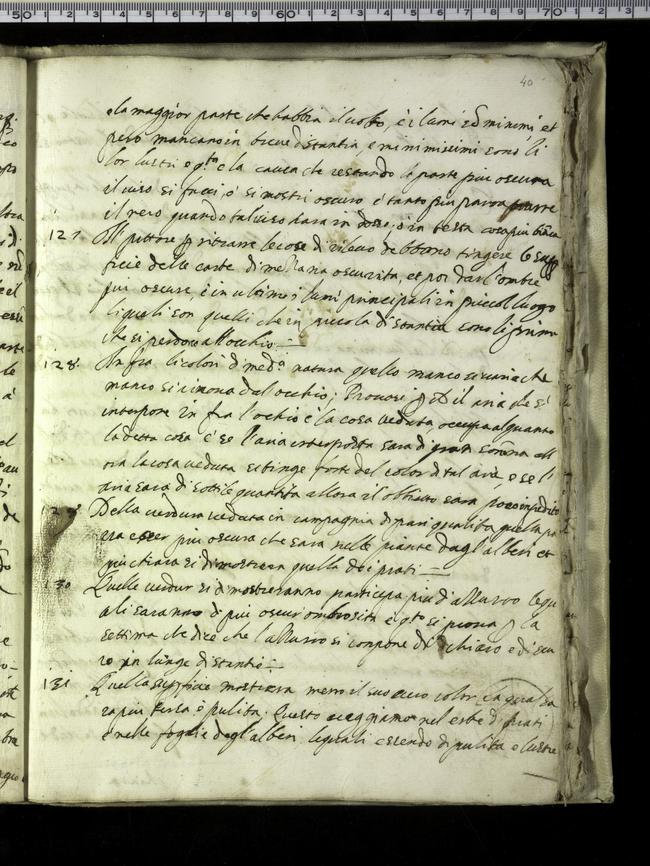 40
e la maggior parte che habbia il volto, è i lumi son minimi et
pero mancano in breve distantia e menimissimi sono li
lor lustri e q.to è la causa che restando la parte piu oscura
il viso si facci, ò si mostri oscuro è tanto piu parra
il nero quando tal viso hara in dosso, ò in testa cosa piu bianca
127 Il pittore p ritrarre le cose di rilievo debbono tingere le super
ficie delle carte di mezzana oscurità, et poi dar l'ombre
piu oscure, è in ultimo i lumi principali in piccol luogo
li quali son quelli che in piccola distantia sono li primi
che si perdono all occhio
128 In fra li colori di med.a natura quello manco si varia che
manco si rimova dal occhio; Provasi p che il aria che si
interpone in fra l'occhio è la cosa veduta occupa alquanto
la detta cosa è se l'aria interposta sara di gran somma all
ora la cosa veduta si tinge forte del color di tal aria, e se l'
aria sara di sottile quantità allora il obbietto sara poco impedito
129 Della verdura veduta in campagnia di pari qualita quella pa
rra esser piu oscura che sara nelle piante dagl'alberi et
piu chiara si dimostrera quella dei prati
130 Quelle verdur si dimostreranno participar piu d'azzurro lequ
ali saranno di piu oscur ombrosità è q.to si prova p la
settima che dice che l'azzurro si conpone di chiaro e di scu
ro in lunge distantie
131 Quella superficie mostrera meno il suo vero color la qual sa
ra piu tersa è pulita. Questo veggiamo nel erbe di prati
è nelle foglie degl'alberi lequali essendo di pulita e lustre